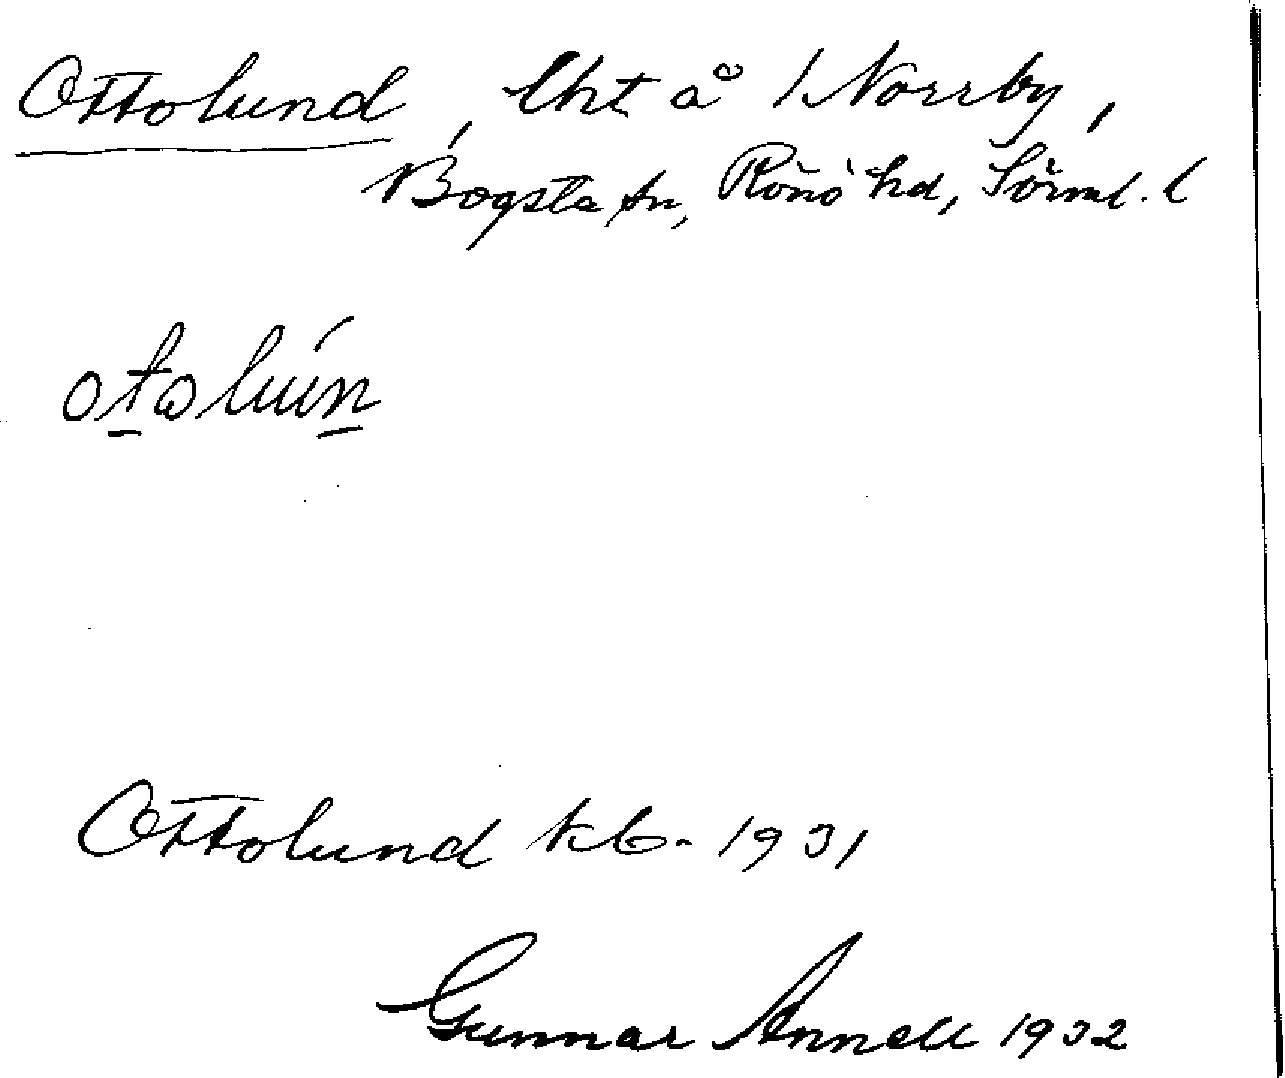 Ottolund, lht å 1 Norrby,
Bogsta sn, Rönö hd, Sörml. l
otolún
Ottolund kb. 1931
Gunnar Annell 1932